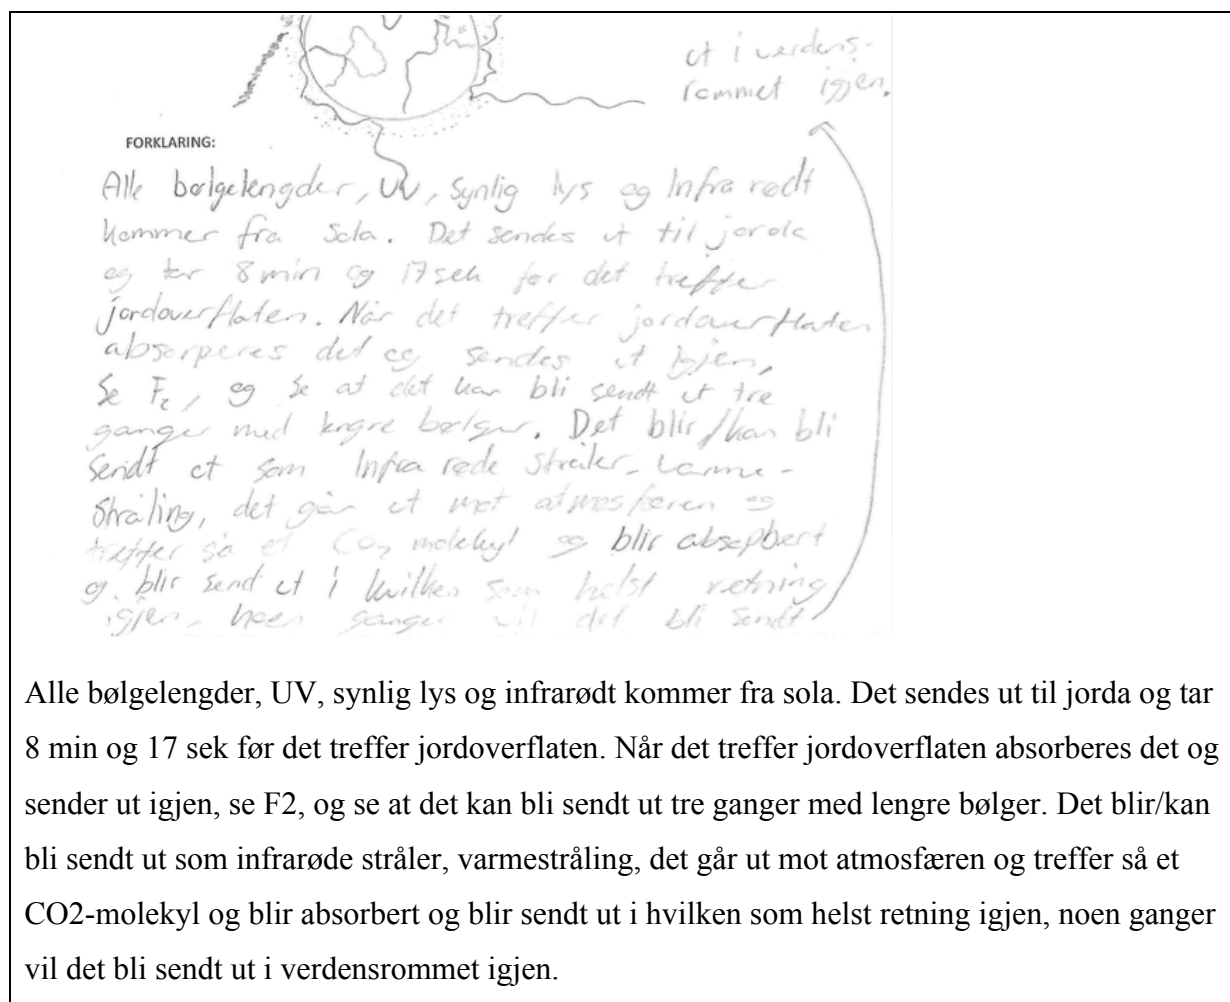 FORKLARING:
Alle bølgelengder, UV, synlig lys og Infra rødt
kommer fra Sola. Det sendes ut til jorda
og tar 8 min og 17 sek før det treffer
jordoverflaten. Når det treffer jordoverflaten
absorperes det og sendes ut igjen,
Se F2, og se at det kan bli sendt ut tre
ganger med lengre bølger. Det blir/kan bli
sendt ut som Infra røde stråler, varme-
stråling, det går ut mot atmosfæren og
treffer så et CO2 molekyl og blir absopbert
og blir send ut i hvilken som helst retning
igjen, noen ganger vil det bli sendt
ut i verdens-
rommet igjen.
Alle bølgelengder, UV, synlig lys og infrarødt kommer fra sola. Det sendes ut til jorda og tar
8 min og 17 sek før det treffer jordoverflaten. Når det treffer jordoverflaten absorberes det og
sender ut igjen, se F2, og se at det kan bli sendt ut tre ganger med lengre bølger. Det blir/kan
bli sendt ut som infrarøde stråler, varmestråling, det går ut mot atmosfæren og treffer så et
CO2-molekyl og blir absorbert og blir sendt ut i hvilken som helst retning igjen, noen ganger
vil det bli sendt ut i verdensrommet igjen.